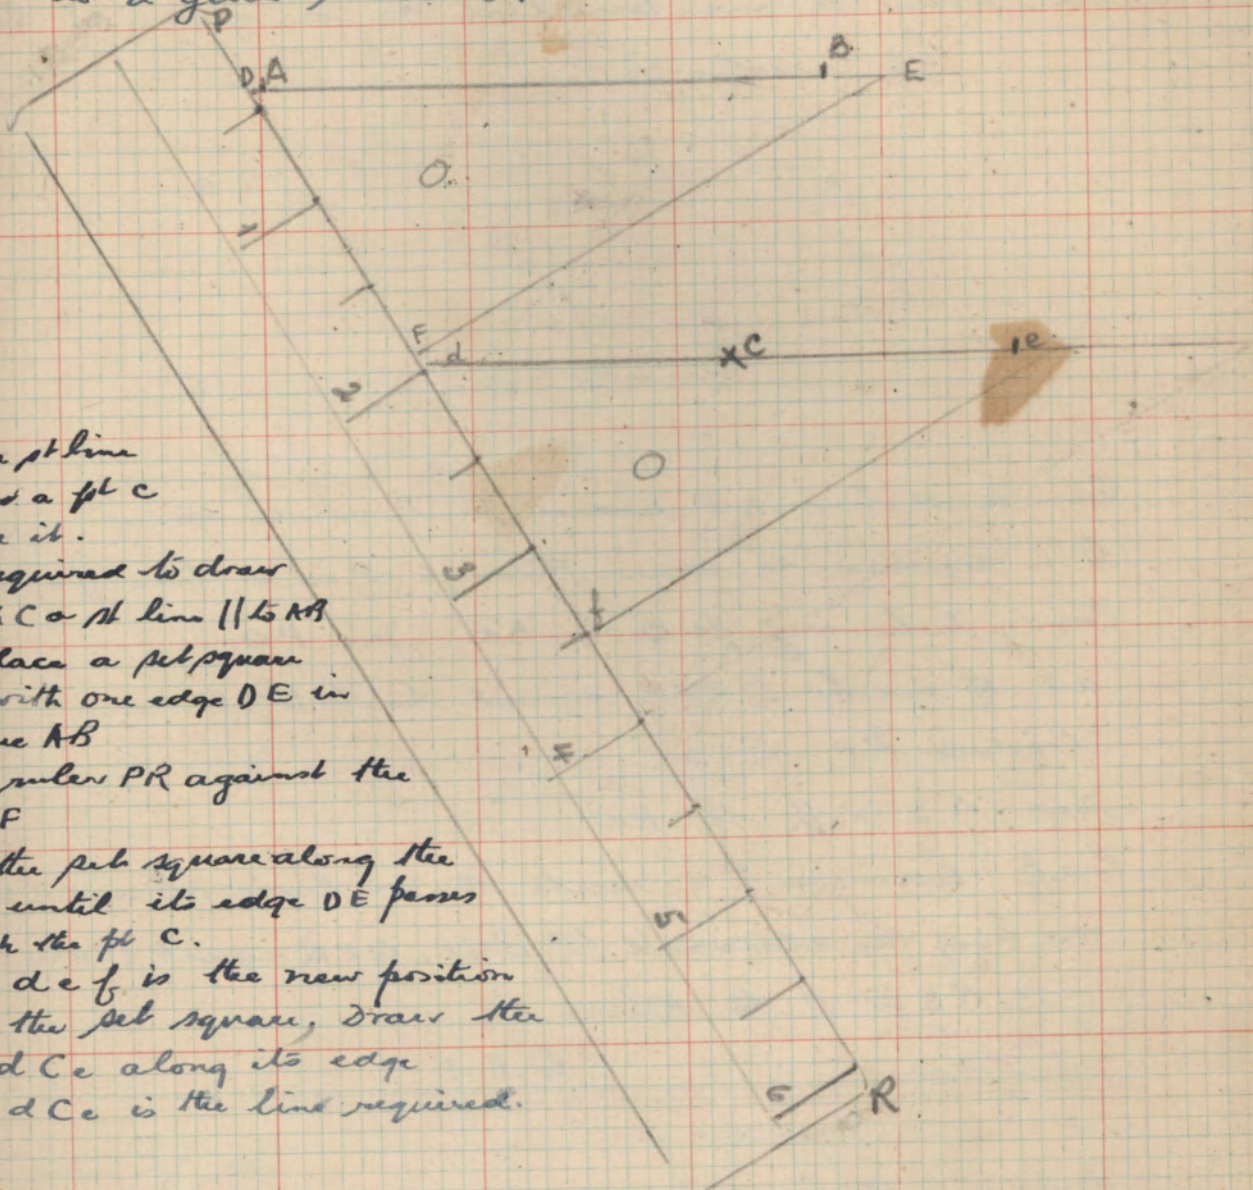 P
D A B E
O
1
F d C e
2
O
3
f
4
5
6
R
st line
a pt C
it.
equired to draw
C a st line || to AB
lace a set square
with one edge DE in
AB
ruler PR against the
F
the set square along the
until its edge DE passes
the pt C.
d e f is the new position
the set square, Draw the
d C e along its edge
d C e is the line required.